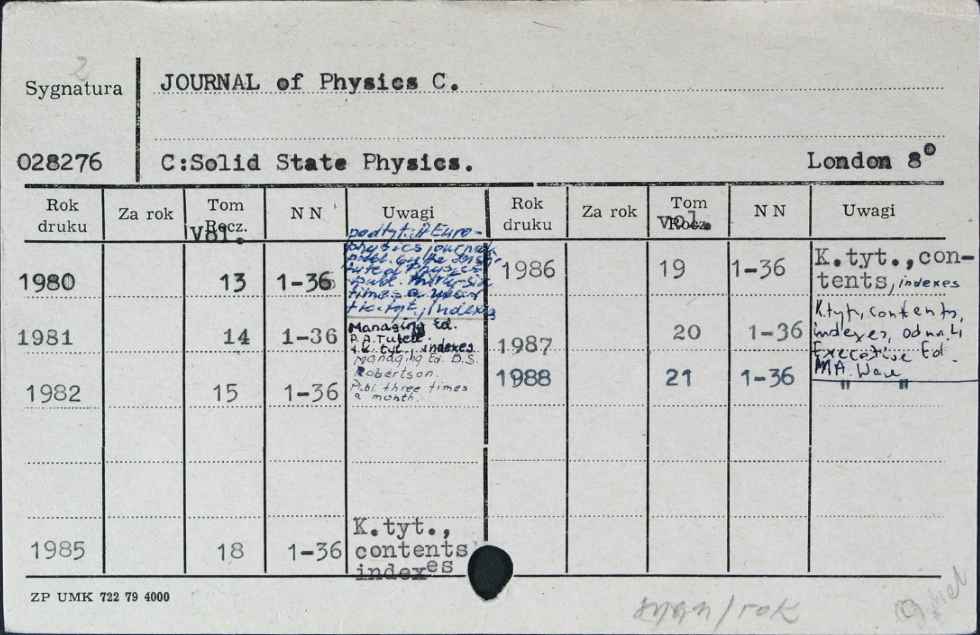 2
Sygnatura JOURNAL of Physics C.
028276 C:Solid State Physics. London 8°
Rok druku Za rok Tom Rocz. vol. NN Uwagi Rok druku Za rok Tom Rocz. vol. NN Uwagi
1980 13 1-36
podtyt.: A Euro-
physics journal
times a year
1981 14 1-36
Managing Ed.
k. tyt., indexes
1982 15 1-36
Managing Ed. D.S.
Robertson.
Publ. three times
a month.
1985 18 1-36
K.tyt.,
contents
indexes
1986 19 1-36
K.tyt.,con-
tents, indexes
1987 20 1-36
K.tyt., contents,
indexes,
Executive Ed.
M.A. Ware
1988 21 1-36 " "
ZP UMK 722 79 4000